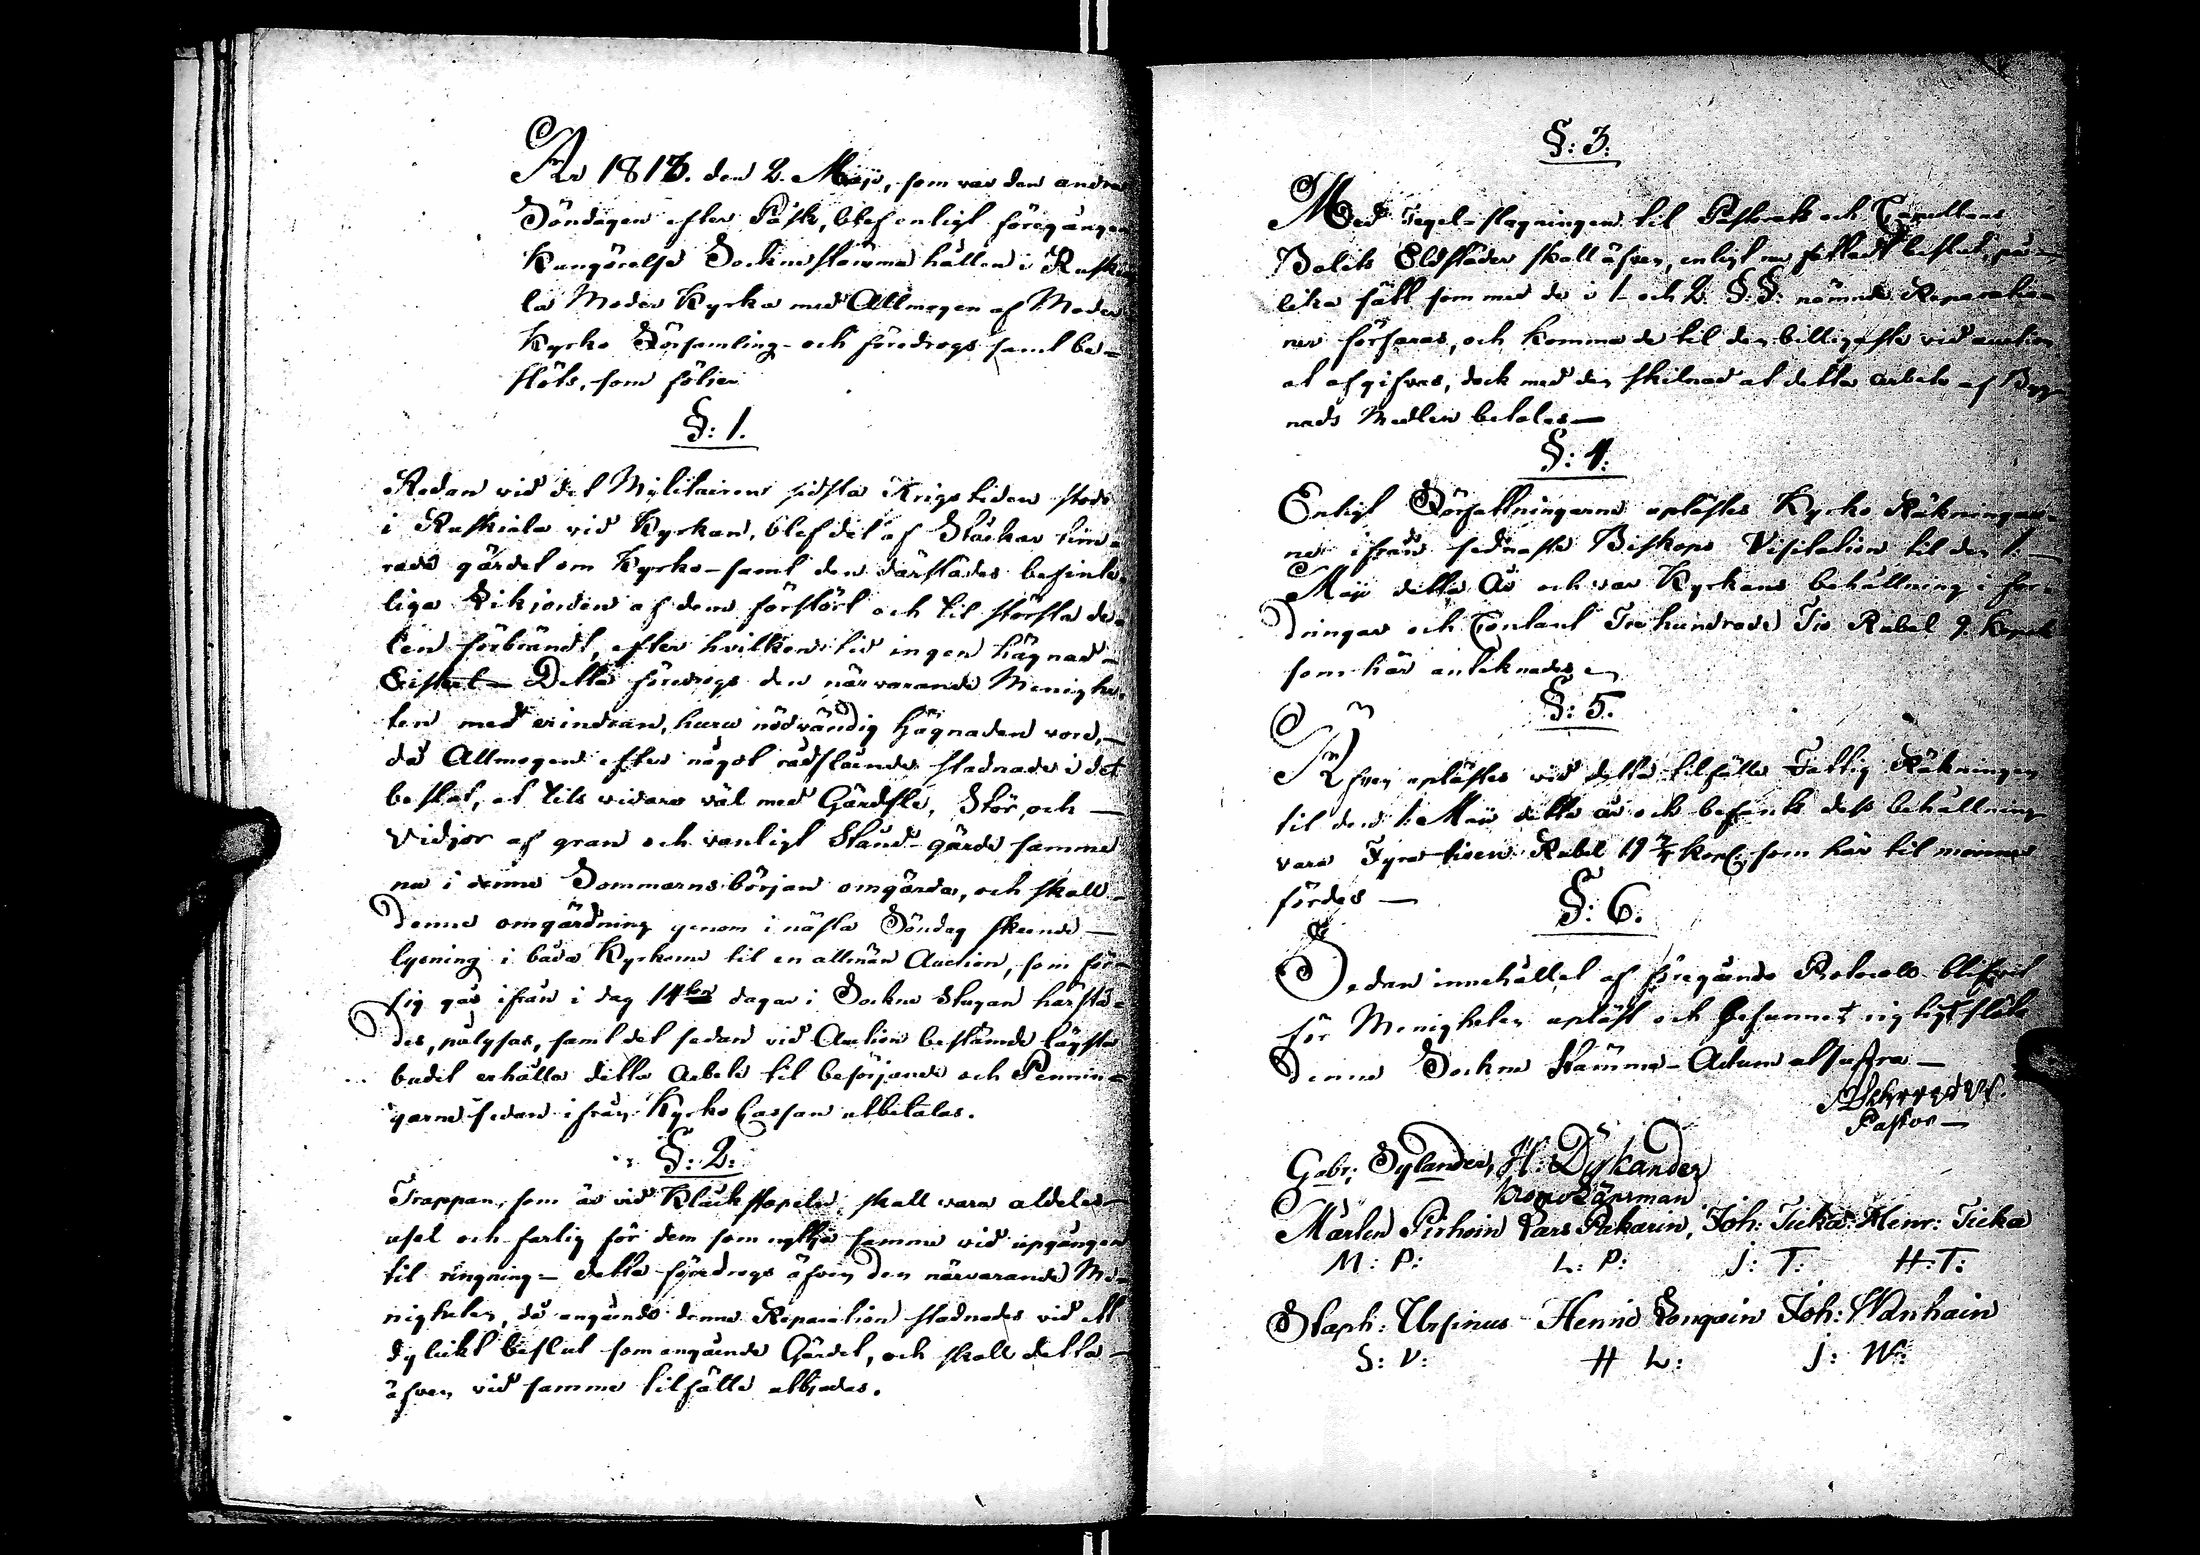 År 1813. den 2. Maji, som var den andra
Söndagen efter Påsk, blef enligt föregången
Kungörelse Sockne stämma hållen i Ruskia-
la Moder Kyrka med Allmogen af Moder
Kyrko Församling och föredrogs samt be-
slöts, som följer
§: 1.
Redan vid det Militairens sidsta Krigstiden stod
i Ruskiala vid Kyrkan, blef det af Stockar tim-
rade gärdet om Kyrko- samt den därstädes befint-
liga Likjorden af dem förstört och til största de-
len förbrändt, efter hvilken tid ingen hägnad
Detta föredrogs den närvarande Menighe-
ten med erindran, huru nödvändig hägnaden vore,—
då Allmogen efter något rådslående stadnade i det
beslut, at tils vidare väl med Gärdsle, Stör, och —
Vidjor af gran och vanligt Stand-gärde samme
nu i denne Sommarns början omgärda, och skall
denne omgärdning genom i nästa Söndag skeende —
lysning i båda Kyrkorne til en allmän Auction, som för
sig går ifrån i dag 14ton dagar i Sockne Stugan härstä-
des, pålysas, samt det sedan vid Auction bestämde lägsta
budet erhålla detta arbete til besörjande och Pennin-
garne sedan ifrån Kyrko Cassan utbetalas.
§: 2:
Trappan, som är vid Klåckstapeln, skall vara aldeles
usel och farlig för dem som nyttja samme vid upgången
til ringning — detta föredrogs äfven den närvarande Me-
nigheten, då angående denne Reparation stadnades vid ett
dylikt beslut som angående Gärdet, och skall detta —
äfven vid samme tilfälle utbjudas.
§: 3:
Med Tegel-slagningen til Pastorats och Capellans
Bolets Eldstäder skall äfven, enligt nu fattadt beslut, på
lika sätt som med de i 1 och 2. §:§: nämnde Reparatio-
ner förfaras, och komma de til den billigaste vid auction
at afgifvas, dock med den skilnad at detta arbete af Byg-
nads Medlen betalas—
§: 4:
Enligt Författningarne uplästes Kyrko Räkningar-
ne ifrån sednaste Biskops Visitation til den 1. —
Maji detta År och var Kyrkans behållning i for-
dringar och Contant Trehundrade Tio Rubel 9. Kopek
som här anteknades
§: 5.
Äfven uplästes vid detta tilfälle Fattig Räkningen
til den 1. Maji detta år och befants dess behållning
vara Fyratioen Rubel 19 3/7 Kop. som här til minnes
fördes —
§: 6.
Sedan innehållet af föregående Protocoll blifvit
för Menigheten upläst och befunnet rigtigt slöts
denne Sockne Stämma - Actum ut supra —
Pastor —
Gabr: Sylander, H: Dyhander
Krono Länsman
Mårten Pirhoin Lars Pakarin, Joh: Ticka: Henr: Ticka
M: P: L: P: J: T: H: T:
Staph: Ursinus Henric Longoin Joh: Wanhain
S: V: H L: J: W: